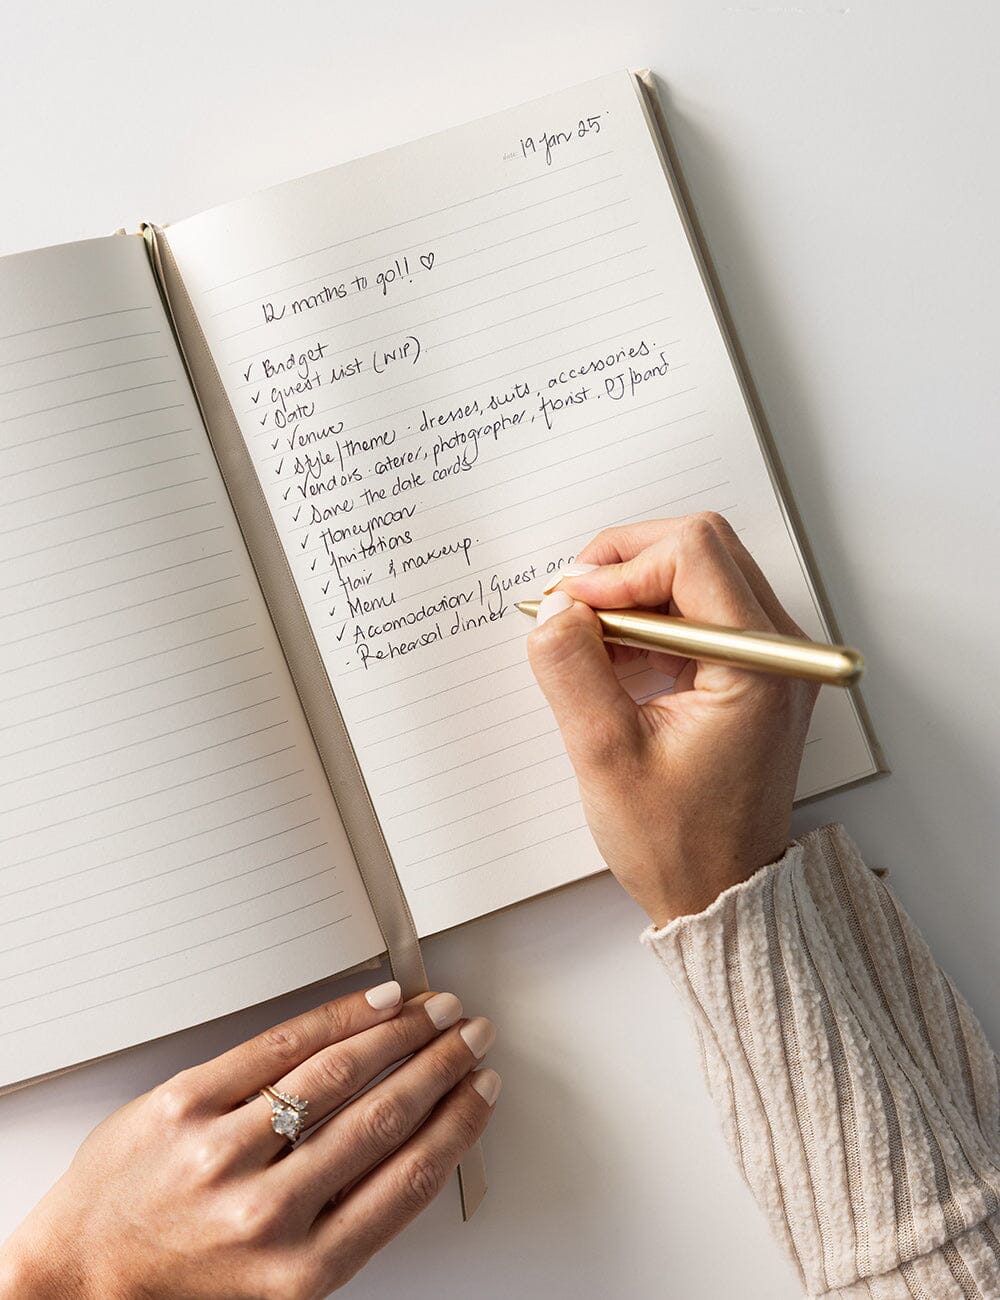 date: 19 Jan 25
12 months to go!! ♡
✓ Budget
✓ Guest list (WIP)
✓ Date
✓ Venue
✓ Style/theme · dresses, suits, accessories.
✓ Vendors · caterer, photographer, florist. DJ/band
✓ Save the date cards
✓ Honeymoon
✓ Invitations
✓ Hair & makeup.
✓ Menu
✓ Accomodation/Guest acc
· Rehearsal dinner